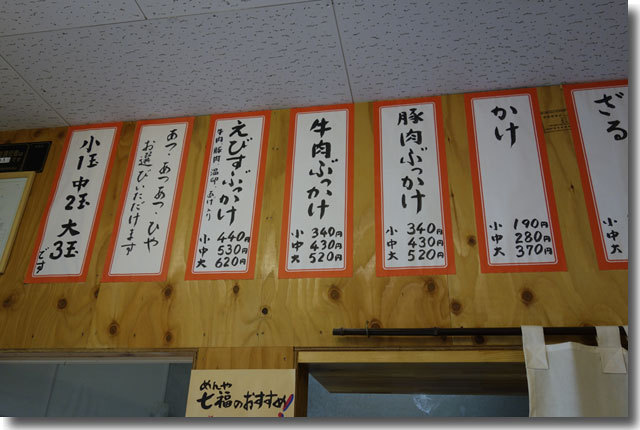 ざる
小
中
大
かけ
190円
小 280円
中 370円
大
豚肉ぶっかけ
小 340円
中 430円
大 520円
牛肉ぶっかけ
小 340円
中 430円
大 520円
えびすぶっかけ
牛肉 豚肉 温卵 あげ入り
小 440円
中 530円
大 620円
あつ・あつあつ・ひや
お選びいただけます
小1玉 中2玉 大3玉です
めんや
七福のおすすめ!